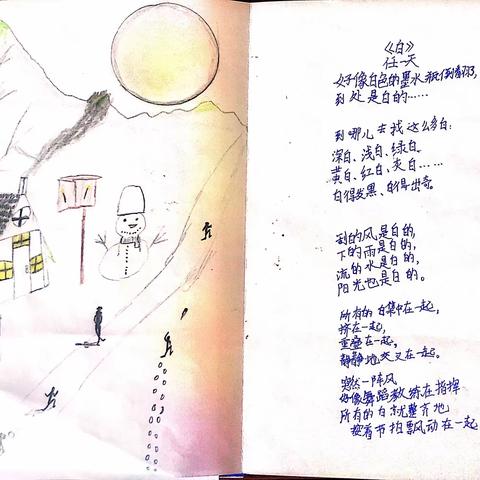 《白》
任一天
好像白色的墨水瓶倒翻了,
到处是白的……
到哪儿去找这么多白:
深白、浅白、绿白、
黄白、红白、灰白……
白得发黑、白得出奇。
到的风是白的,
下的雨是白的,
流的水是白的,
阳光也是白的。
所有的白集中在一起,
挤在一起,
重叠在一起,
静静地交叉在一起。
突然一阵风
好像舞蹈教练在指挥
所有的白就整齐地
按着节拍飘动在一起